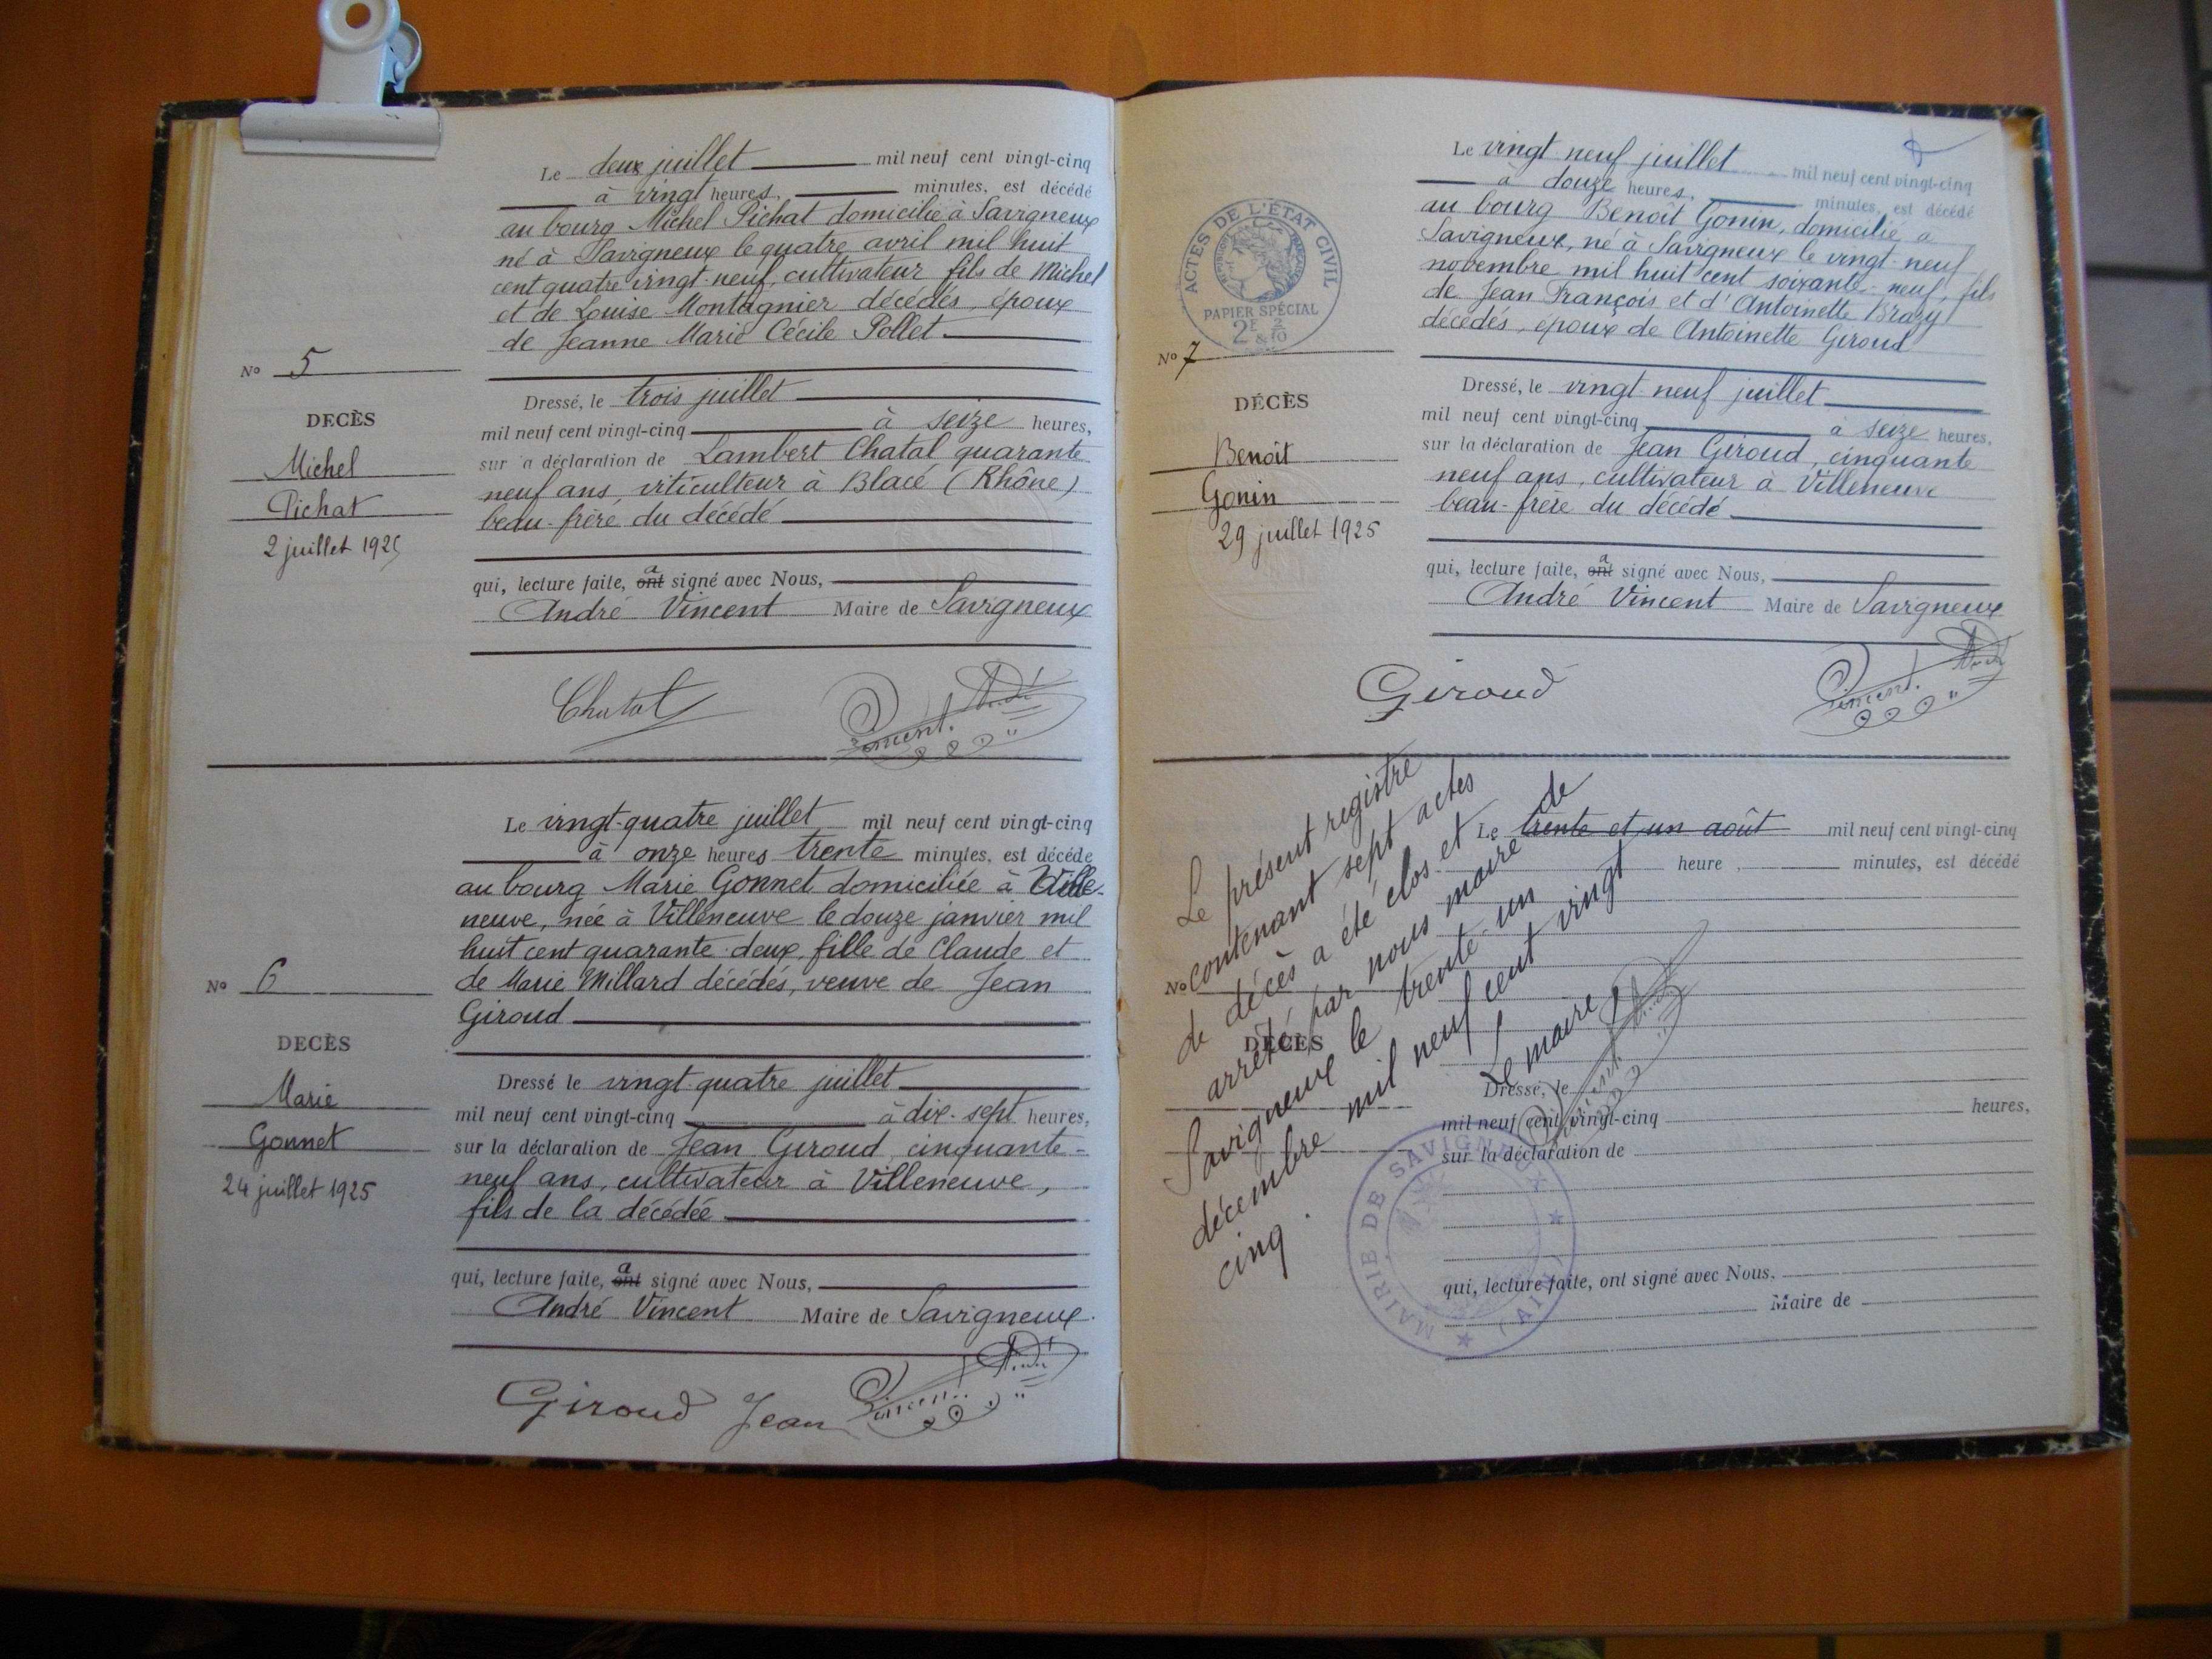 Le deux juillet mil neuf cent vingt-cinq
à vingt heures, minutes, est décédé
au bourg Michel Pichat domicilié à Savigneux
né à Savigneux le quatre avril mil huit
cent quatre vingt-neuf, cultivateur fils de Michel
et de Louise Montagnier décédés, époux
de Jeanne Marie Cécile Pollet
No 5
DECÈS
Michel
Pichat
2 juillet 1925
Dressé, le trois juillet
mil neuf cent vingt-cinq à seize heures,
sur la déclaration de Lambert Chatal quarante
neuf ans, viticulteur à Blacé (Rhône)
beau-frère du décédé
qui, lecture faite, ont a signé avec Nous,
André Vincent Maire de Savigneux
Chatal
Vincent André
Le vingt-quatre juillet mil neuf cent vingt-cinq
à onze heures trente minutes, est décédé
au bourg Marie Gonnet domiciliée à Ville-
neuve, née à Villeneuve le douze janvier mil
huit cent quarante-deux, fille de Claude et
de Marie Millard décédés, veuve de Jean
Giroud
No 6
DECÈS
Marie
Gonnet
24 juillet 1925
Dressé le vingt-quatre juillet
mil neuf cent vingt-cinq à dix-sept heures,
sur la déclaration de Jean Giroud cinquante-
neuf ans, cultivateur à Villeneuve,
fils de la décédée
qui, lecture faite, ont a signé avec Nous,
André Vincent Maire de Savigneux.
Giroud Jean
Vincent André
Le vingt neuf juillet mil neuf cent vingt-cinq
à douze heures, minutes, est décédé
au bourg Benoît Gonin, domicilié à
Savigneux, né à Savigneux le vingt-neuf
novembre mil huit cent soixante-neuf, fils
de Jean François et d'Antoinette Brazy
décédés, époux de Antoinette Giroud
ACTES DE L'ÉTAT CIVIL
PAPIER SPÉCIAL
2E & 2/10
No 7
DÉCÈS
Benoît
Gonin
29 juillet 1925
Dressé, le vingt-neuf juillet
mil neuf cent vingt-cinq à seize heures,
sur la déclaration de Jean Giroud, cinquante
neuf ans, cultivateur à Villeneuve
beau-frère du décédé
qui, lecture faite, ont a signé avec Nous,
André Vincent Maire de Savigneux
Giroud
Vincent André
Le trente et un août mil neuf cent vingt-cinq
heure minutes, est décédé
No
DÉCÈS
Le présent registre
contenant sept actes
de décès a été clos et
arrêté par nous maire de
Savigneux le trente-un
décembre mil neuf cent vingt
cinq.
Le maire,
Vincent André
Dressé, le
mil neuf cent vingt-cinq heures,
sur la déclaration de
qui, lecture faite, ont signé avec Nous,
Maire de
MAIRIE DE SAVIGNEUX
(AIN)